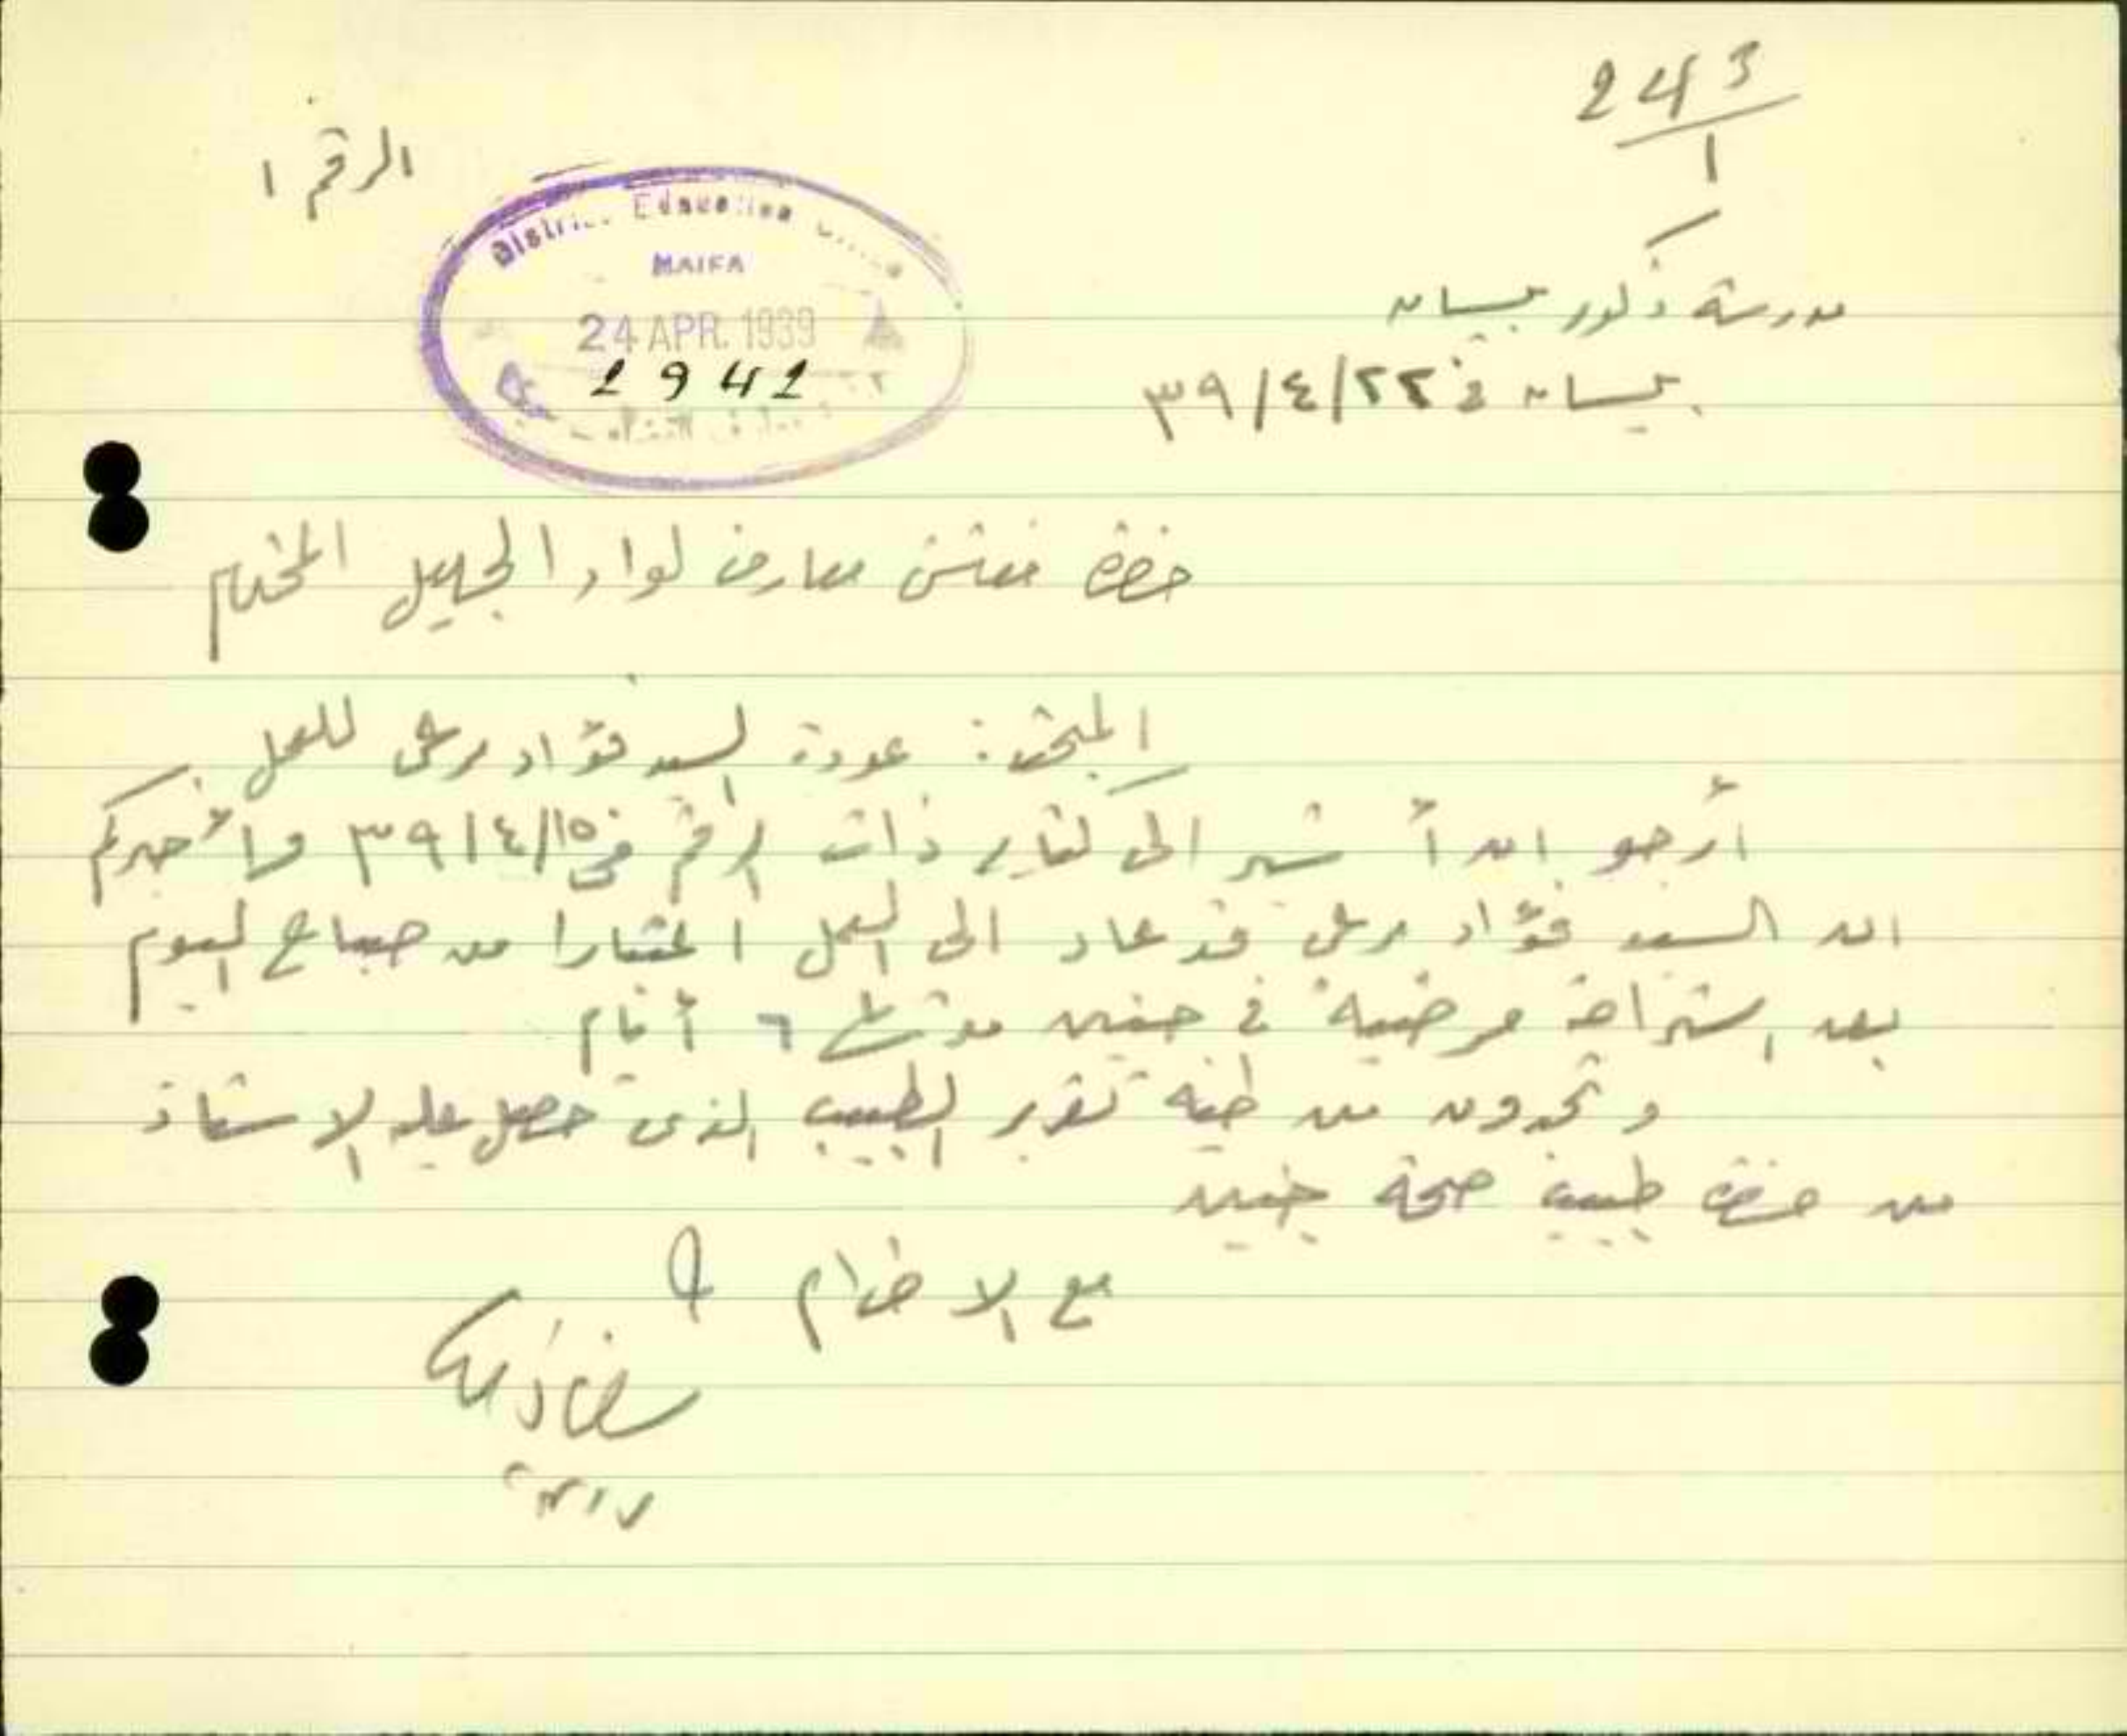 243
1
الرقم ١
District Education
HAIFA
24 APR. 1939
2941
مدرسة ذكور بيسان
بيسان في ٢٢/٤/٣٩
حضرة مفتش معارف لواء الجليل المحترم
المبحث: عودة السيد فؤاد مرعي للعمل
أرجو ان أشير الى كتابي ذات الرقم في ١٥/٤/٣٩ ولأخبركم
ان السيد فؤاد مرعي قد عاد الى العمل اعتبارا من صباح اليوم
بعد استراحة مرضية في جنين مدتها ٦ أيام
وتجدون من طيه تقرير الطبيب الذي حصل عليه الاستاذ
من حضرة طبيب صحة جنين
مع الاحترام